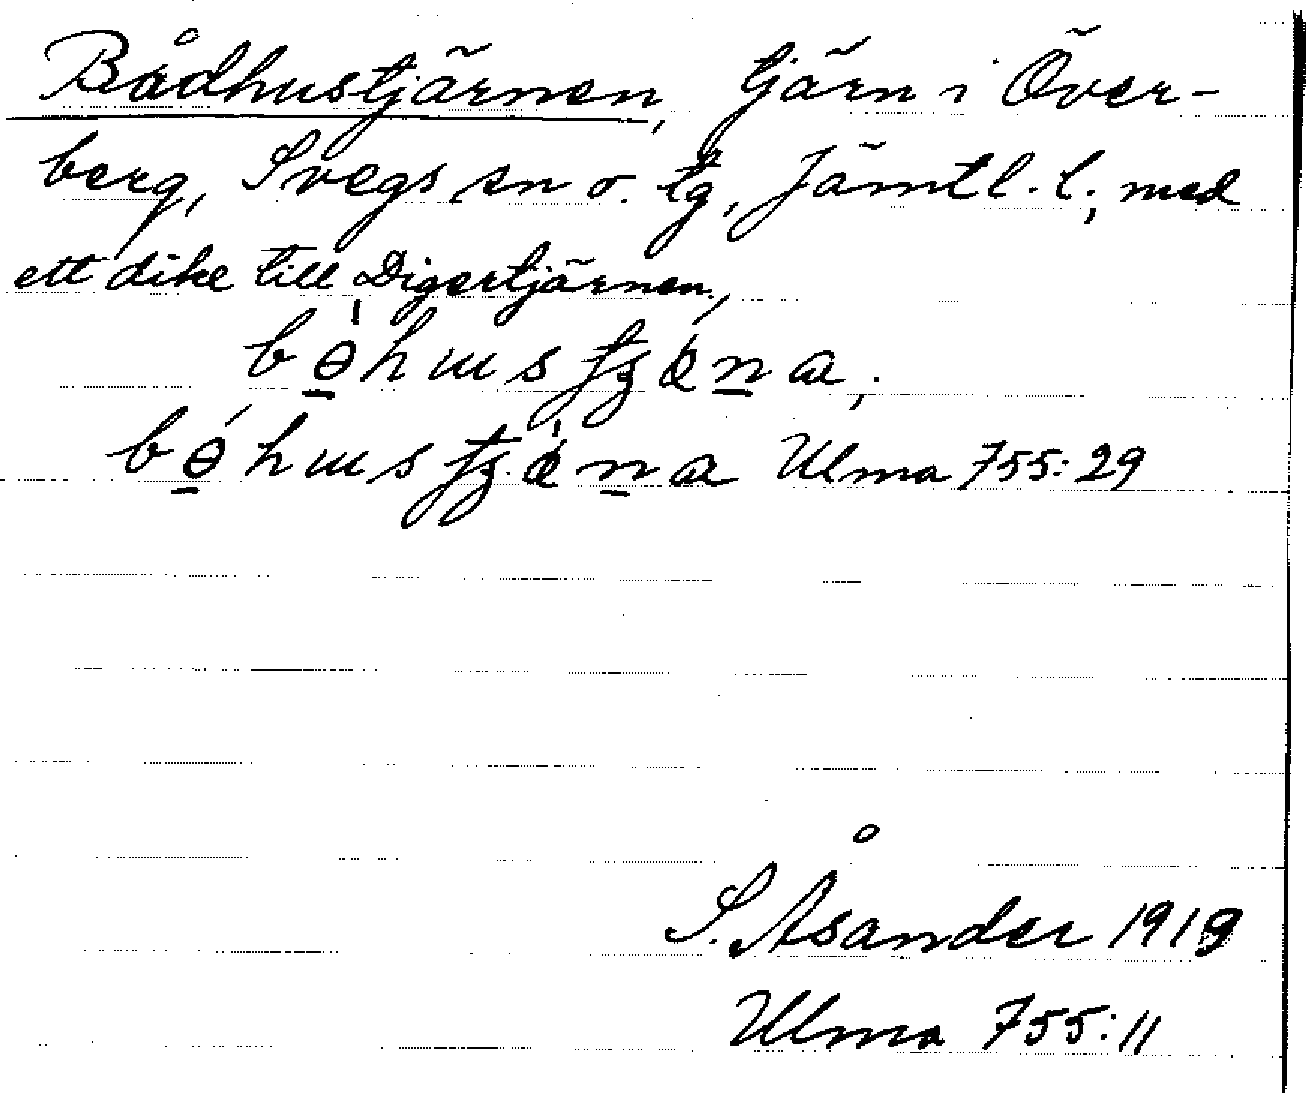 Bådhustjärnen, tjärn i Över-
berg, Svegs sn o. tg, Jämtl. l.; med
ett dike till Digertjärnen,
bɵ̠hɯsfʒǽn̠a,
bɵ̠́hɯsfʒǽn̠a Ulma 755:29
S. Åsander 1919
Ulma 755:11